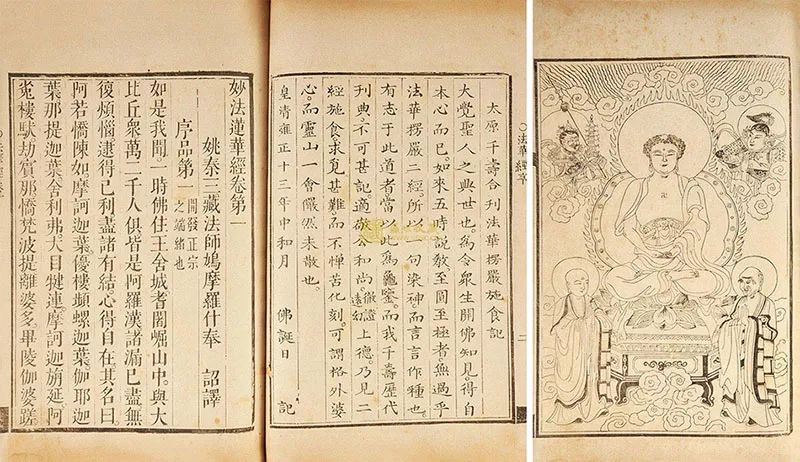 法華經序
卍
太原千壽合刊法華楞嚴施食記
大覺聖人之興世也。為令眾生開佛知見得自
本心而已。如來五時說教。至圓至極者。無過乎
法華楞嚴二經所以一句染神而言言作種也。
有志于此道者當以此為龜鑒。而我千壽歷代
刊典。不可甚記適公和尚上德。乃見二
經施食。求覓甚難。而不憚苦化刻。可謂格外婆
心。而靈山一會儼然未散也。
皇清雍正十三年中和月 佛誕日 記
妙法蓮華經卷第一
姚秦三藏法師鳩摩羅什奉 詔譯
序品第一 開發正宗之端緒也
如是我聞一時佛住王舍城耆闍崛山中。與大
比丘眾萬二千人俱皆是阿羅漢諸漏已盡無
復煩惱逮得己利盡諸有結心得自在。其名曰。
阿若憍陳如摩訶迦葉。優樓頻螺迦葉。伽耶迦
葉那提迦葉舍利弗。大目犍連。摩訶迦旃延阿
㝹樓馱劫賓那憍梵波提離婆多。畢陵伽婆蹉